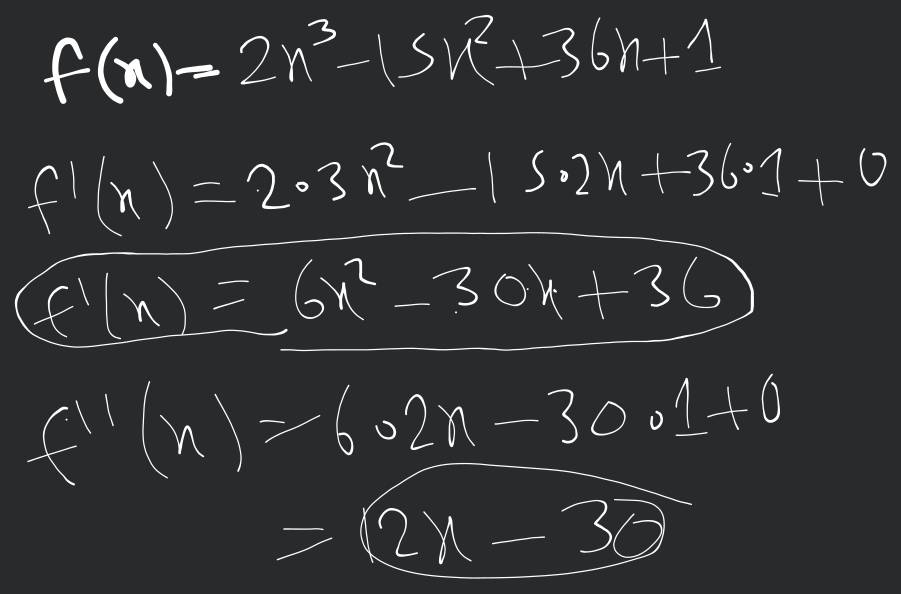 f(x) = 2x³ - 15x² + 36x + 1
f'(x) = 2·3x² - 15·2x + 36·1 + 0
f'(x) = 6x² - 30x + 36
f''(x) = 6·2x - 30·1 + 0
= 12x - 30